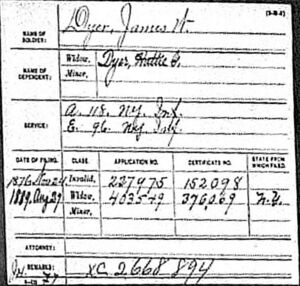 (3-M-4)
NAME OF SOLDIER: Dyer, James W.
NAME OF DEPENDENT: Widow, Dyer, Hattie C.
Minor,
SERVICE: A. 118. N.Y. Inf.
E. 96 N.Y. Inf.
DATE OF FILING. CLASS. APPLICATION NO. CERTIFICATE NO. STATE FROM WHICH FILED.
1876 Nov 24 Invalid, 227975 152098
1889, Aug 29 Widow, 403549 376069 N.Y.
Minor,
ATTORNEY:
REMARKS: XC 2668894